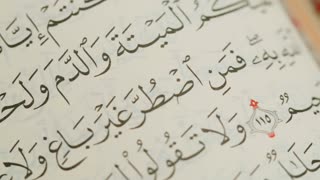 كُنتُمْ إِيَّا
ـيْكُمُ ٱلْمَيْتَةَ وَٱلدَّمَ وَلَحْـ
ـلَّهِ بِهِۦ ۖ فَمَنِ ٱضْطُرَّ غَيْرَ بَاغٍ وَلَا
ـحِيمٌ ١١٥ وَلَا تَقُولُوا۟
حَلَـٰ